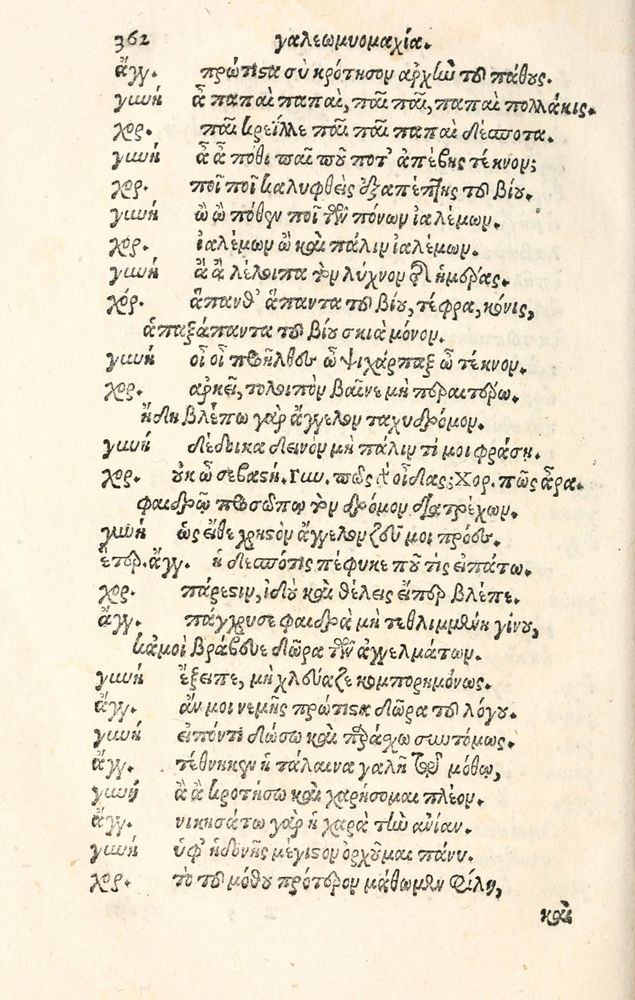 362 γαλεωμυομαχία.
ἄγγ. πρώτιστα συγκρότησον ἀρχὴν τοῦ πάθους.
γυνή ἆ παπαῖ παπαῖ, παῖ παῖ, παπαῖ πολλάκις.
χορ. παῖ Κρείλλε παῖ παῖ παπαῖ δέσποτα.
γυνή ἆ ἆ πόθι παῖ ποῦ ποτ' ἀπέβης τέκνον;
χορ. ποῖ ποῖ καλυφθεὶς ἐξαπέπτης τοῦ βίου.
γυνή ὢ ὢ πόθων ποῖ τῶν πόνων ἰαλέμων.
χορ. ἰαλέμων ὢ καὶ πάλιν ἰαλέμων.
γυνή ἆ ἆ λέλοιπα τὸν λύχνον τῆς ἡμέρας.
χόρ. ἅπανθ' ἅπαντα τοῦ βίου, τέφρα, κόνις,
ἁπαξάπαντα τοῦ βίου σκιὰ μόνον.
γυνή οἷ οἷ προῆλθον ὦ ψιχάρπαξ ὦ τέκνον.
χορ. ἀρκεῖ, τολοιπὸν βαῖνε μὴ περαιτέρω.
ἤδη βλέπω γὰρ ἄγγελον ταχυδρόμον.
γυνή δέδοικα δεινὸν μὴ πάλιν τί μοι φράσῃ.
χορ. οὐκ ὦ σεβαστή. Γυν. πῶς δ' οἶδας; Χορ. πῶς ἆρα.
φαιδρῷ προσώπῳ τὸν δρόμον διατρέχων.
γυνή ὡς εἴθε χρηστὸν ἄγγελον ζοῦ μοι πρόσω.
ἕτερ. ἄγγ. ἡ δεσπότις πέφυκε ποῦ τὶς εἰπάτω.
χορ. πάρεστιν, ἰδοὺ καὶ θέλεις εἴπερ βλέπε.
ἄγγ. πάγχρυσε φαιδρὰ μὴ τεθλιμμένη γίνου,
κἀμοὶ βράβευε δῶρα τῶν ἀγγελμάτων.
γυνή ἔξειπε, μὴ χλεύαζε κομπορημόνως.
ἄγγ. ἄν μοι νεμῇς πρώτιστα δῶρα τοῦ λόγου.
γυνή εἰπόντι δώσω καὶ παράσχω συντόμως.
ἄγγ. τέθνηκεν ἡ τάλαινα γαλῆ τῷ μόθῳ,
γυνή ἆ ἆ κροτήσω καὶ χαρήσομαι πλέον.
ἄγγ. νικησάτω γὰρ ἡ χαρὰ τὴν ἀνίαν.
γυνή ὑφ' ἡδονῆς μέγιστον ὀρχοῦμαι πάνυ.
χορ. τὸ τοῦ μόθου πρότερον μάθωμεν φίλη,
καὶ